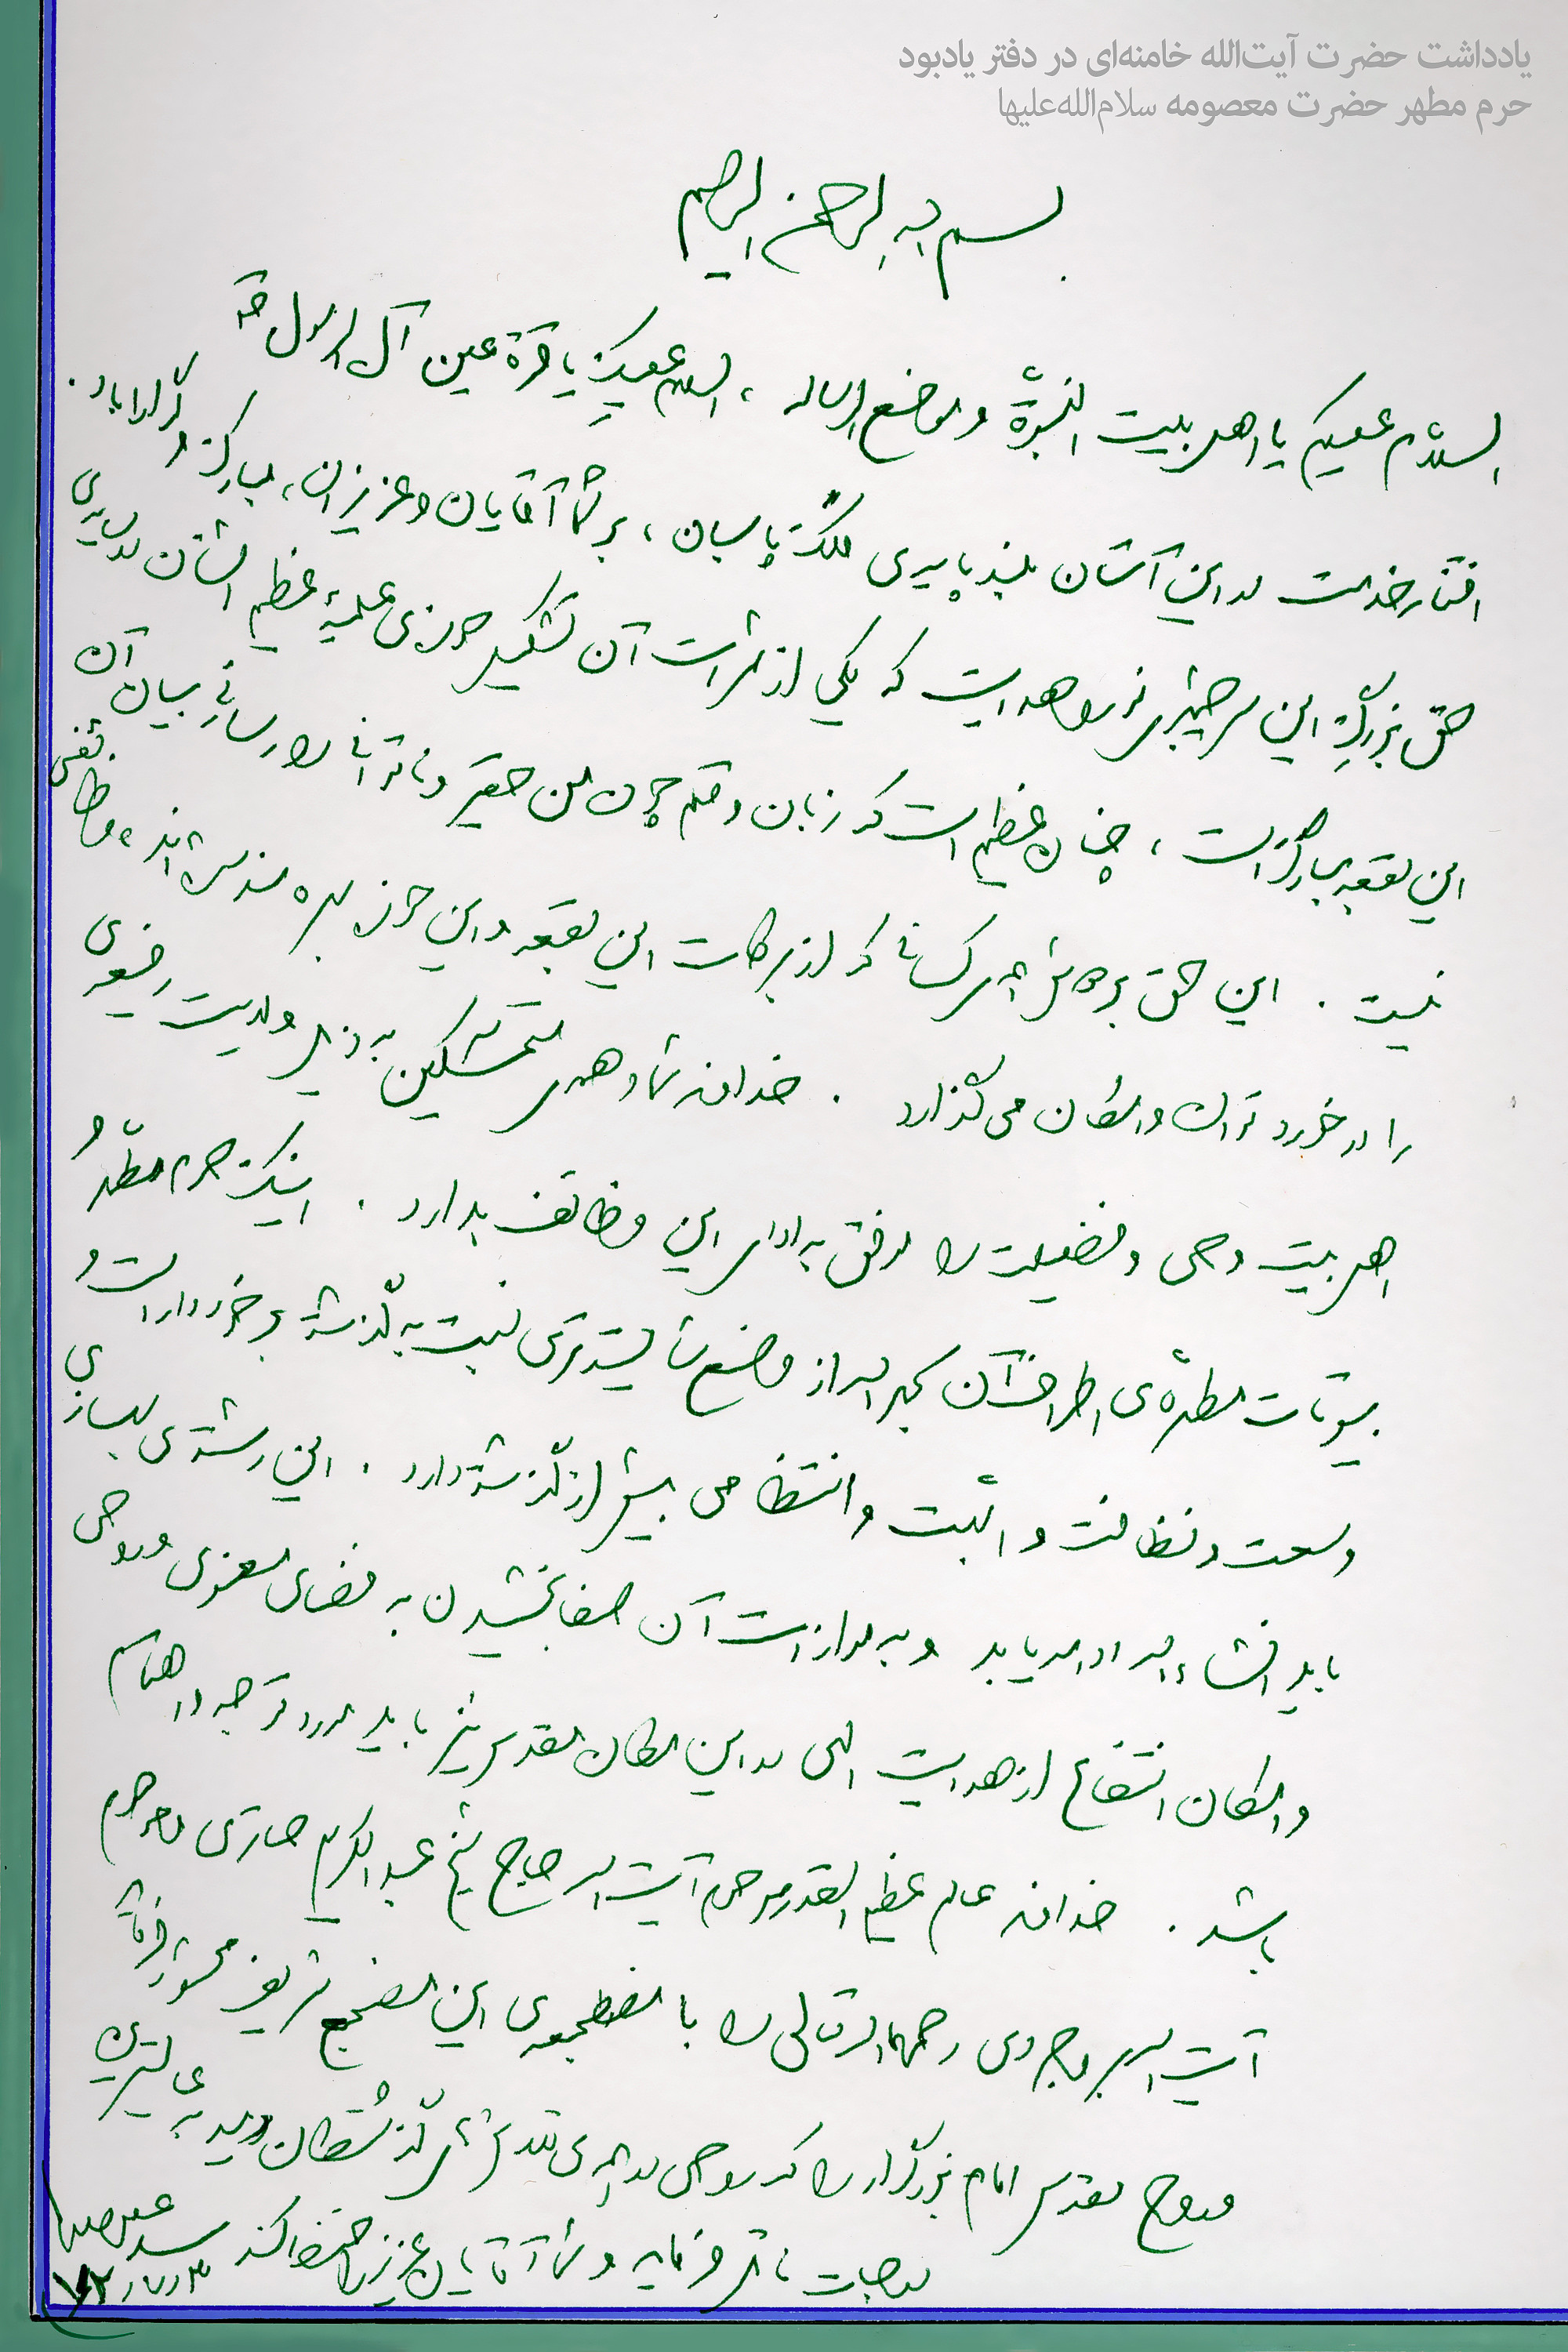 یادداشت حضرت آیت‌الله خامنه‌ای در دفتر یادبود
حرم مطهر حضرت معصومه سلام‌الله‌علیها
بسم الله الرحمن الرحیم
السلام علیکم یا اهل بیت النبوة و موضع الرساله ، السلام علیکِ یا قرة عین آل الرسول
افتخار خدمت در این آستان بلند پایه‌ی ملک پاسبان ، بر شما آقایان و عزیزان، مبارک و گوارا باد.
حق بزرگِ این سرچشمه‌ی نور و هدایت که یکی از ثمرات آن تشکیل حوزه‌ی علمیهٔ عظیم الشأن در
این بقعه‌ی مبارکه است ، چنان عظیم است که زبان و قلم چون من حقیر و ناتوانی را رسائیِ بیان آن
نیست . این حق بر دوش همه‌ی کسانی که از برکات این بقعه و این حوزه بهره‌مند شده‌اند، وظائفی
را در خورد توان و امکان می‌گذارد . خداوند شما و همه‌ی متمسّکین به ذیل ولایت رضوی
اهل بیت وحی و فضیلت را موفق به ادای این وظائف بدارد . اینک حرم مطهّر و
بیوتات مطهره‌ی اطراف آن بحمدالله از وضع شایسته‌تری نسبت به گذشته برخوردار است و
وسعت و نظافت و ابّهت و انتظامی بیش از گذشته دارد . این رشته‌ی بهسازی
باید انشاءالله ادامه یابد و به موازات آن صفا بخشیدن به فضای معنوی و روحی
و امکان انتفاع از هدایت الهی در این مکان مقدس نیز باید مورد توجه و اهتمام
باشد . خداوند عالم عظیم القدر مرحوم آیت الله حاج شیخ عبدالکریم حائری و مرحوم
آیت الله بروجردی رحمهما الله تعالی را با این مضجع شریف محشور فرماید
و روح مقدس امام بزرگوار را که روحی در همه‌ی گذشتگان دمید به عالیترین
درجات نائل فرماید و شما آقایان عزیز را حفظ کند سید علی خامنه‌ای
۷۲/۷/۳